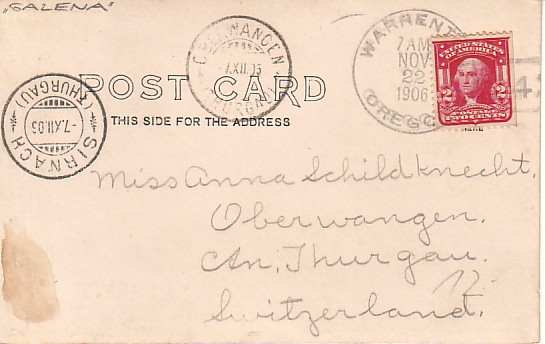 "GALENA"
WARRENT
7 AM
NOV
22
1906
OREGO
UNITED STATES
OF AMERICA
2 2
POSTAGE
TWO CENTS
7.XII.06
(THURGAU)
-7.XII.06
SIRNACH
(THURGAU)
POST CARD
THIS SIDE FOR THE ADDRESS
Miss Anna Schildknecht,
Oberwangen.
Cn. Thurgau.
Switzerland.
12